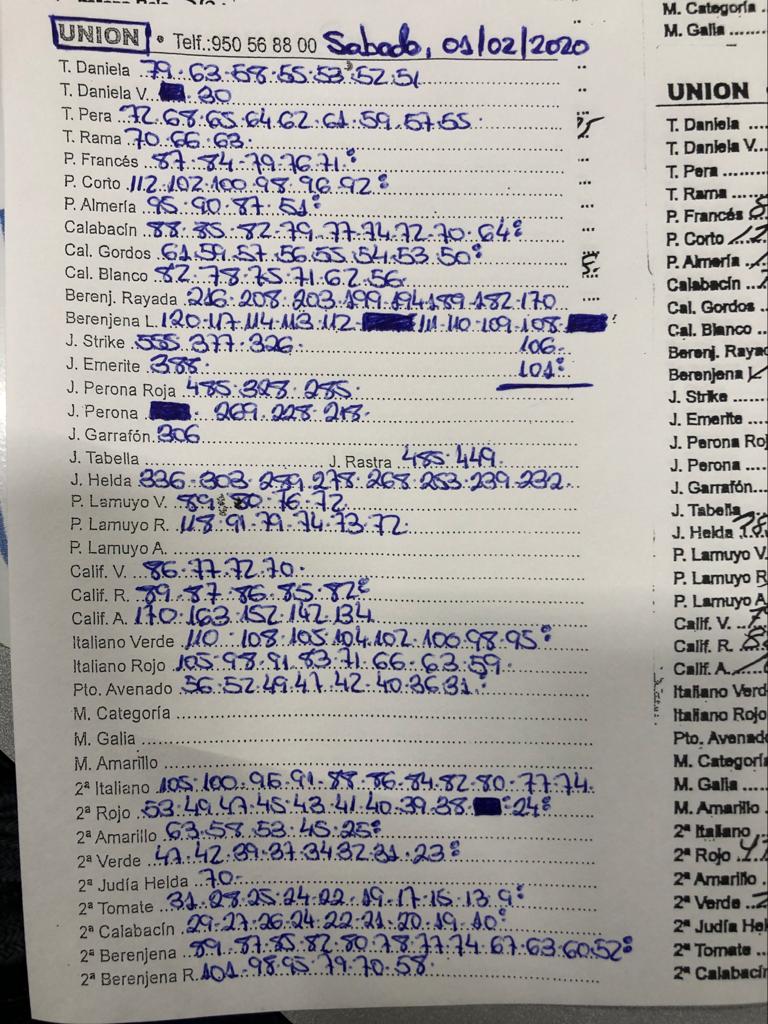 UNION • Telf.:950 56 88 00 Sabado, 01/02/2020
T. Daniela 79.63.58.55.53.52.51
T. Daniela V. 30
T. Pera 72.68.65.64.62.61.59.57.55.
T. Rama 70.66.63.
P. Francés 87.84.79.76.71:
P. Corto 112.102.100.98.96.92:
P. Almería 95.90.87.51:
Calabacín 88.85.82.79.77.74.72.70.64:
Cal. Gordos 61.59.57.56.55.54.53.50:
Cal. Blanco 82.78.75.71.62.56.
Berenj. Rayada 216.208.203.199.194.189.182.170
Berenjena L. 120.117.114.113.112 111.110.109.108
J. Strike 555.377.326. 106.
J. Emerite 388. 101:
J. Perona Roja 485.328.285.
J. Perona 269.228.218.
J. Garrafón 306
J. Tabella J. Rastra 485.449.
J. Helda 336.303.289.278.268.253.239.232.
P. Lamuyo V. 89.80.76.72
P. Lamuyo R. 118.91.79.74.73.72.
P. Lamuyo A.
Calif. V. 86.77.72.70.
Calif. R. 89.87.86.85.82:
Calif. A. 170.163.152.142.134
Italiano Verde 110.108.105.104.102.100.98.95:
Italiano Rojo 105.98.91.83.71.66.63.59.
Pto. Avenado 56.52.49.47.42.40.36.31.:
M. Categoría
M. Galia
M. Amarillo
2ª Italiano 105.100.96.91.88.86.84.82.80.77.74.
2ª Rojo 53.49.47.45.43.41.40.39.38 :24:
2ª Amarillo 63.58.53.45.25:
2ª Verde 47.42.39.37.34.32.31.23:
2ª Judía Helda 70.
2ª Tomate 31.28.25.24.22.19.17.15.13.9:
2ª Calabacín 29.27.26.24.22.21.20.19.10:
2ª Berenjena 89.87.85.82.80.78.77.74.67.63.60.52:
2ª Berenjena R. 101.98.95.79.70.58.
M. Categoría
M. Galia
UNION
T. Daniela
T. Daniela V.
T. Pera
T. Rama
P. Francés
P. Corto
P. Almería
Calabacín
Cal. Gordos
Cal. Blanco
Berenj. Raya
Berenjena L
J. Strike
J. Emerite
J. Perona Ro
J. Perona
J. Garrafón
J. Tabella
J. Helda
P. Lamuyo V
P. Lamuyo R
P. Lamuyo A
Calif. V.
Calif. R.
Calif. A.
Italiano Verd
Italiano Rojo
Pto. Avenad
M. Categorí
M. Galia
M. Amarillo
2ª Italiano
2ª Rojo
2ª Amarillo
2ª Verde
2ª Judía Hel
2ª Tomate
2ª Calabacín